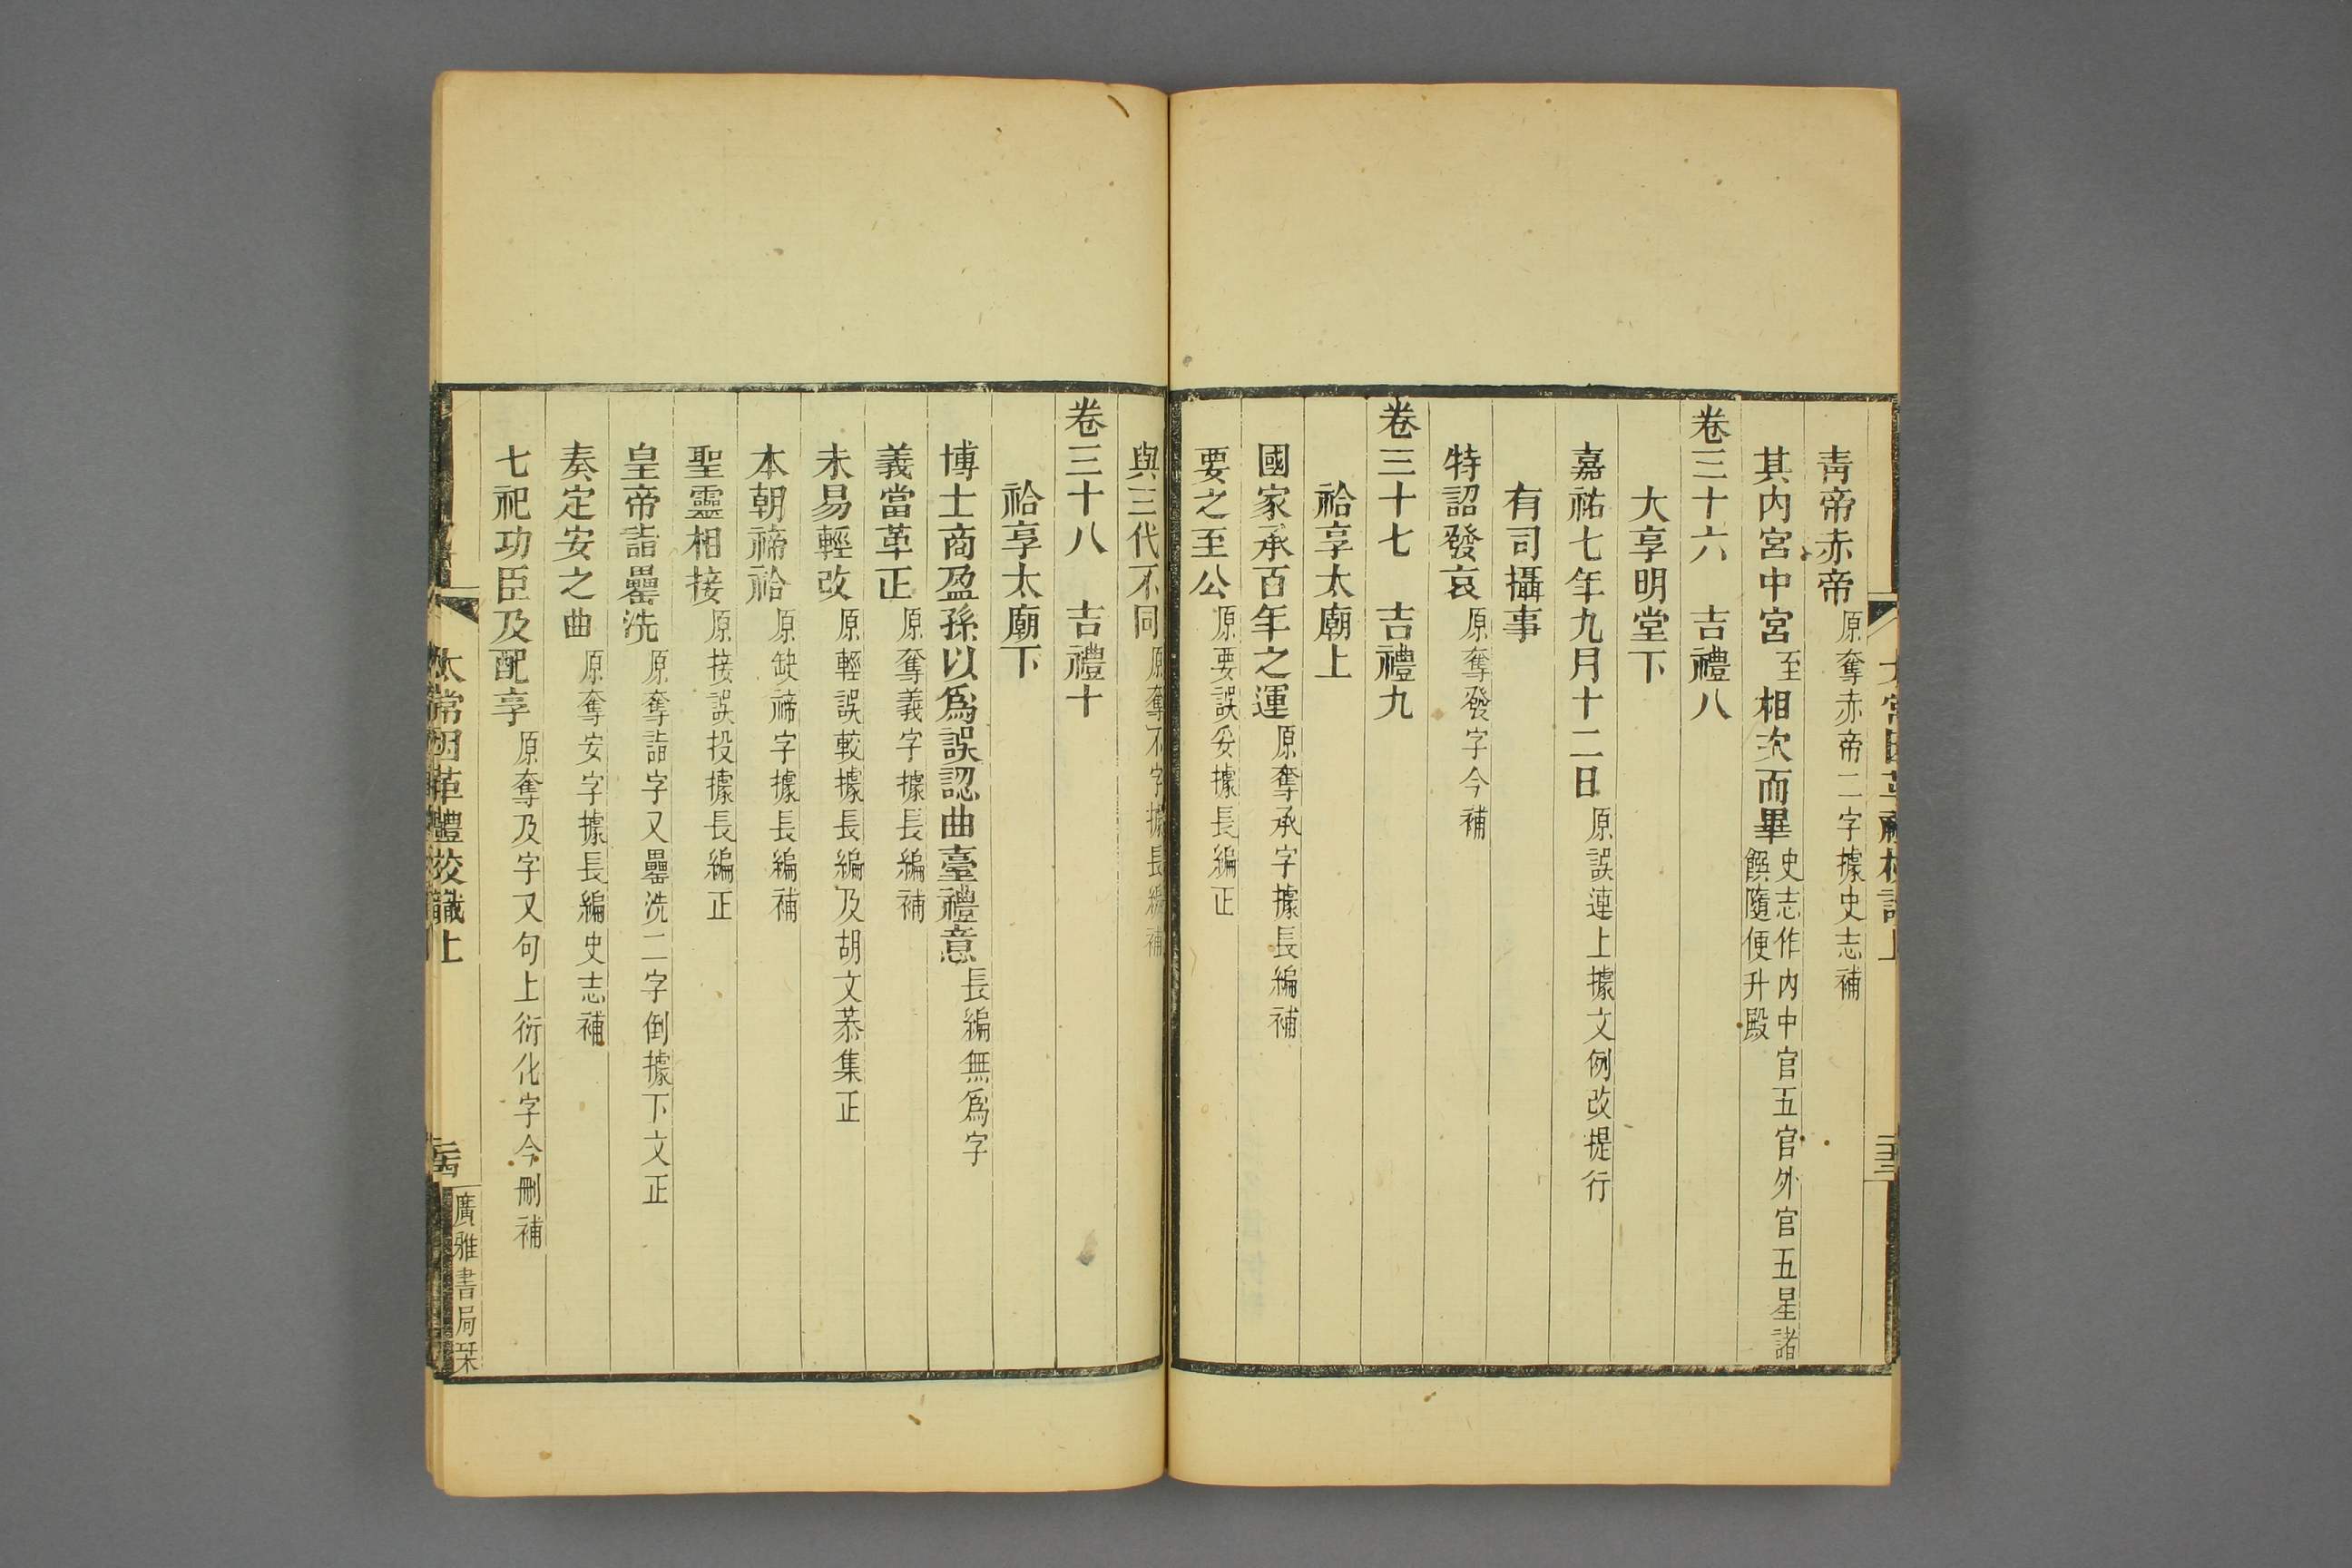 青帝赤帝原奪赤帝二字據史志補
其内宮中宮至相次而畢史志作内中官五官外官五星諸饌隨便升殿
卷三十六　吉禮八
大享明堂下
嘉祐七年九月十二日原誤連上據文例改提行
有司攝事
特詔發哀原奪發字今補
卷三十七　吉禮九
祫享太廟上
國家承百年之運原奪承字據長編補
要之至公原要誤妥據長編正
與三代不同原奪不字據長編補
卷三十八　吉禮十
祫享太廟下
博士商盈孫以爲誤認曲臺禮意長編無爲字
義當革正原奪義字據長編補
未易輕改原輕誤較據長編及胡文恭集正
本朝禘祫原缺禘字據長編補
聖靈相接原接誤投據長編正
皇帝詣罍洗原奪詣字又罍洗二字倒據下文正
奏定安之曲原奪安字據長編史志補
七祀功臣及配享原奪及字又句上衍化字今刪補
太常因革禮校識上
廣雅書局栞